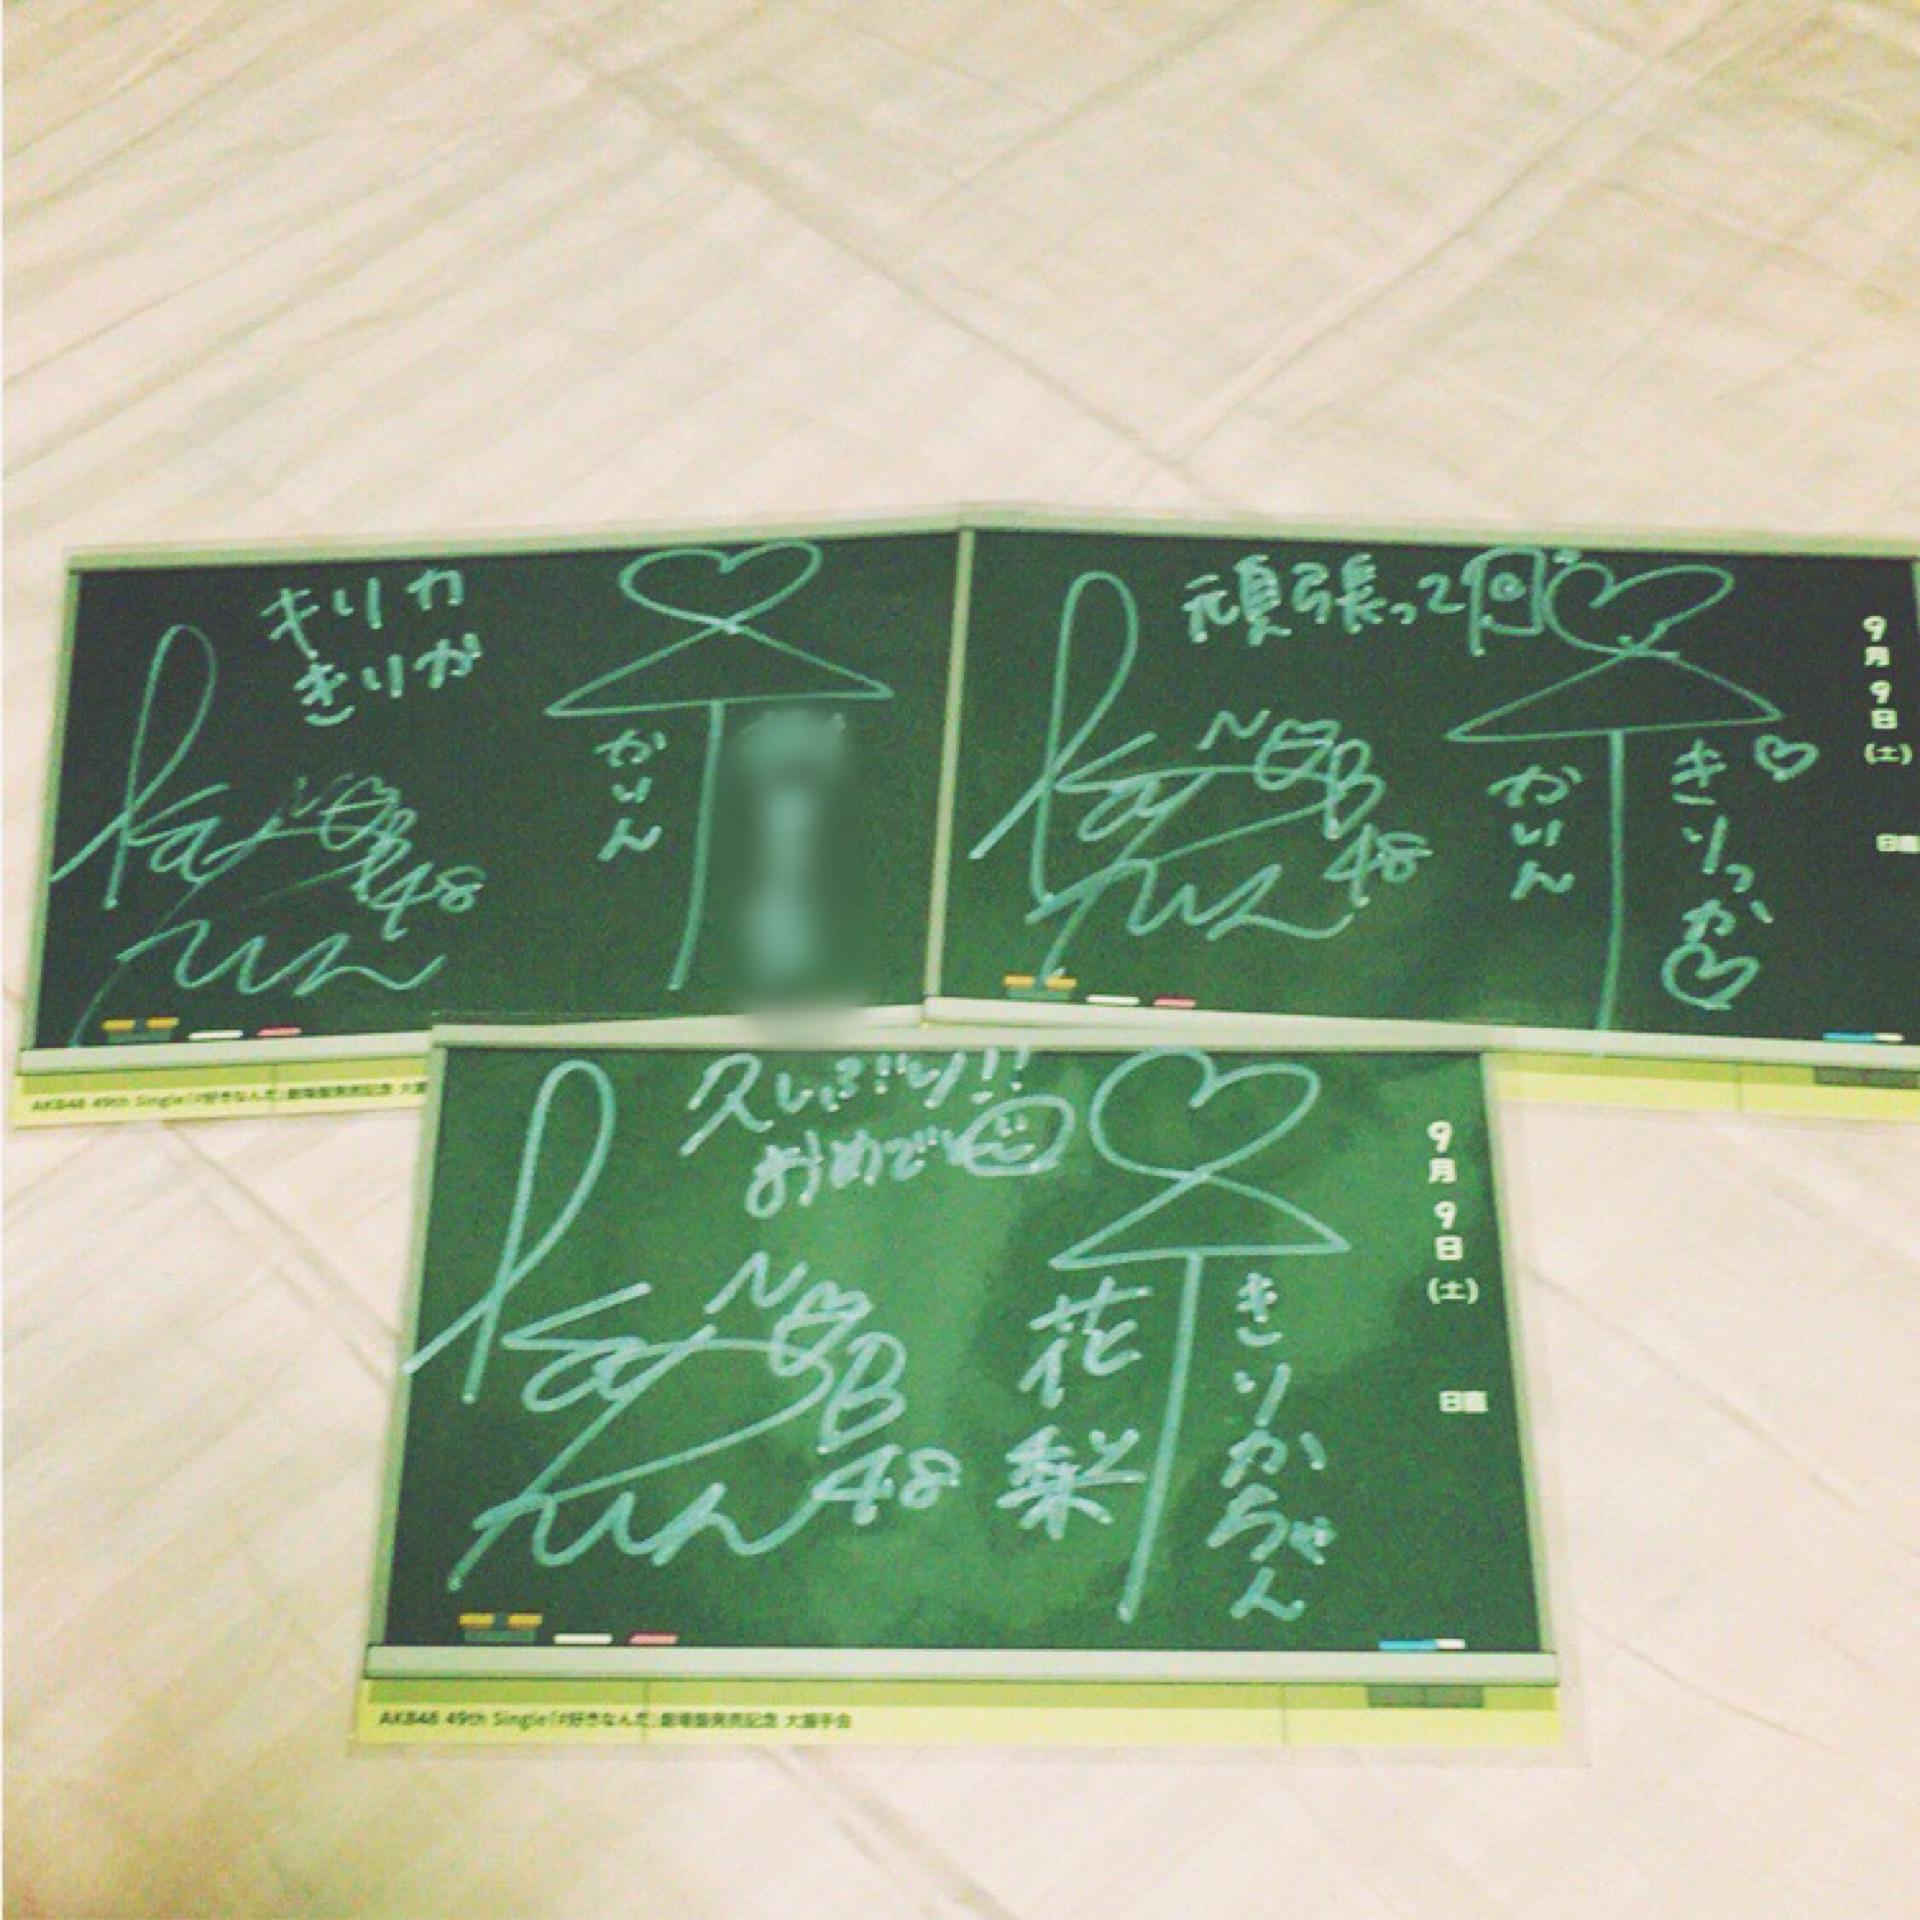 キリカ
きりか
かいん
NGB
48
AKB48 49th Single「#好きなんだ」劇場盤発売記念 大握
頑張って
NGB
48
かいん
きりっか
9月9日(土)
日直
久しぶり!!
おめでと
NGB
48
花梨
きりかちゃん
9月9日(土)
日直
AKB48 49th Single「#好きなんだ」劇場盤発売記念 大握手会